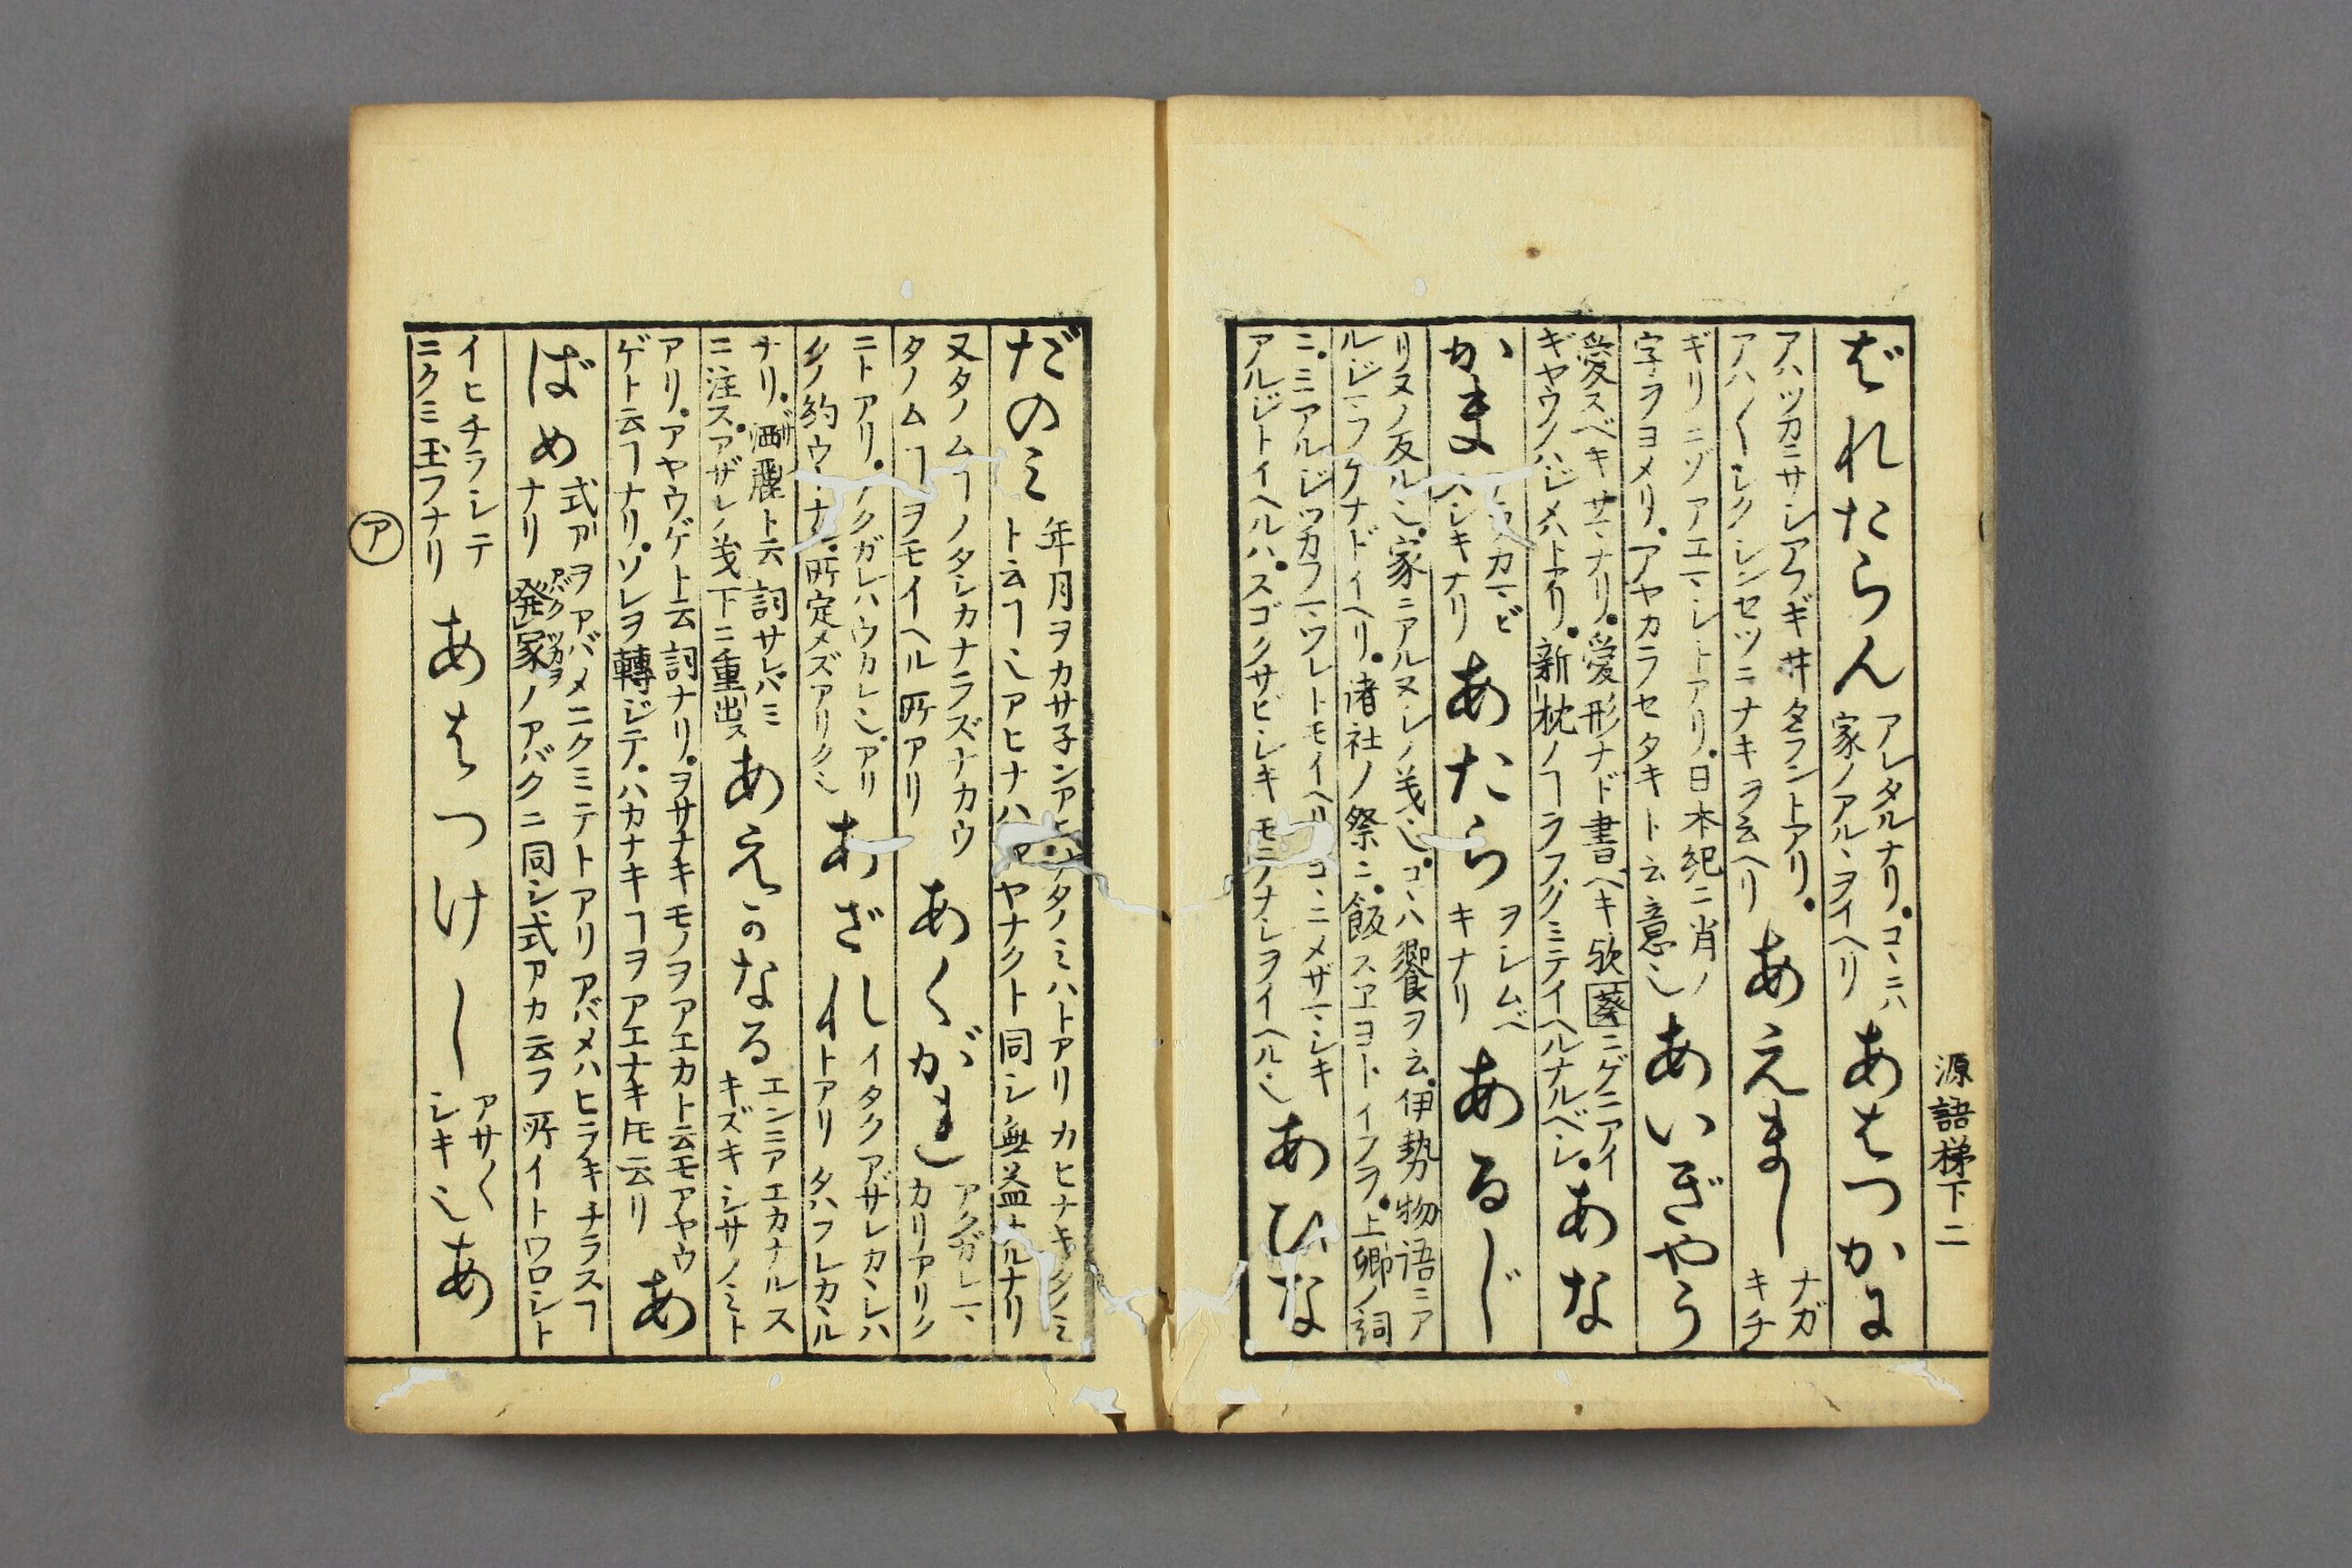 源語梯下二
ばれたらん
アレタルナリ。コヽニハ
家ノアルヽヲイヘリ
あはつかに
アハツカニサシアフギ井タラントアリ。
アハ〳〵シクシンセツニナキヲ云ヘリ
あえまし
ナガ
キチ
ギリニゾアエマシトアリ。日本紀ニ肖ノ
字ヲヨメリ。アヤカラセタキト云意也
あいぎやう
愛スベキサマナリ。愛形ナド書ベキ欤葵ニゲニアイ
ギヤウノハジメハトアリ。新枕ノヿヲフクミテイヘルナルベシ。
あな
かま
カマビ
シキナリ
あたら
ヲシムベ
キナリ
あるじ
リヌノ反ル也。家ニアルヌシノ義也。コヽハ饗ヲ云。伊勢物語ニア
ルジマフケナドイヘリ。諸社ノ祭ニ。飯スヱヨトイフヲ。上卿ノ詞
ニ。ミアルジツカフマツレトモイヘリ コヽニメザマシキ
アルジトイヘルハ。スゴクサビシキ モテナシヲイヘル也
あひな
だのミ
年月ヲカサ子ンア タノミハトアリ カヒナキタノミ
ト云ヿ也アヒナハ アヤナクト同シ無益ナルナリ
又タノムヿノタシカナラズナカウ
タノムヿヲモイヘル所アリ
あくがれ
アクガレマ
カリアリク
ニトアリ。アクガレハウカレ也。アリ
クノ約ウ ナリ 所定メズアリク也
あざれ
イタクアザレカヽレハ
トアリ タハフレカヽル
ナリ。洒麗ト云詞サレバミ
ニ注ス。アザレノ義下ニ重出ス
あえかなる
エンニアエカナルス
キズキシサノミト
アリ。アヤウゲト云詞ナリ。ヲサナキモノヲアエカト云モアヤウ
ゲト云ヿナリ。ソレヲ轉ジテ。ハカナキヿヲアエナキ𪜈云リ
あ
ばめ
式アヲアバメニクミテトアリ アバメハヒラキチラスヿ
ナリ 発家ノアバクニ同シ式アカ云フ所イトワロシト
イヒチラシテ
ニクミ玉フナリ
あはつけし
アサ〳〵
シキ也
あ
ア